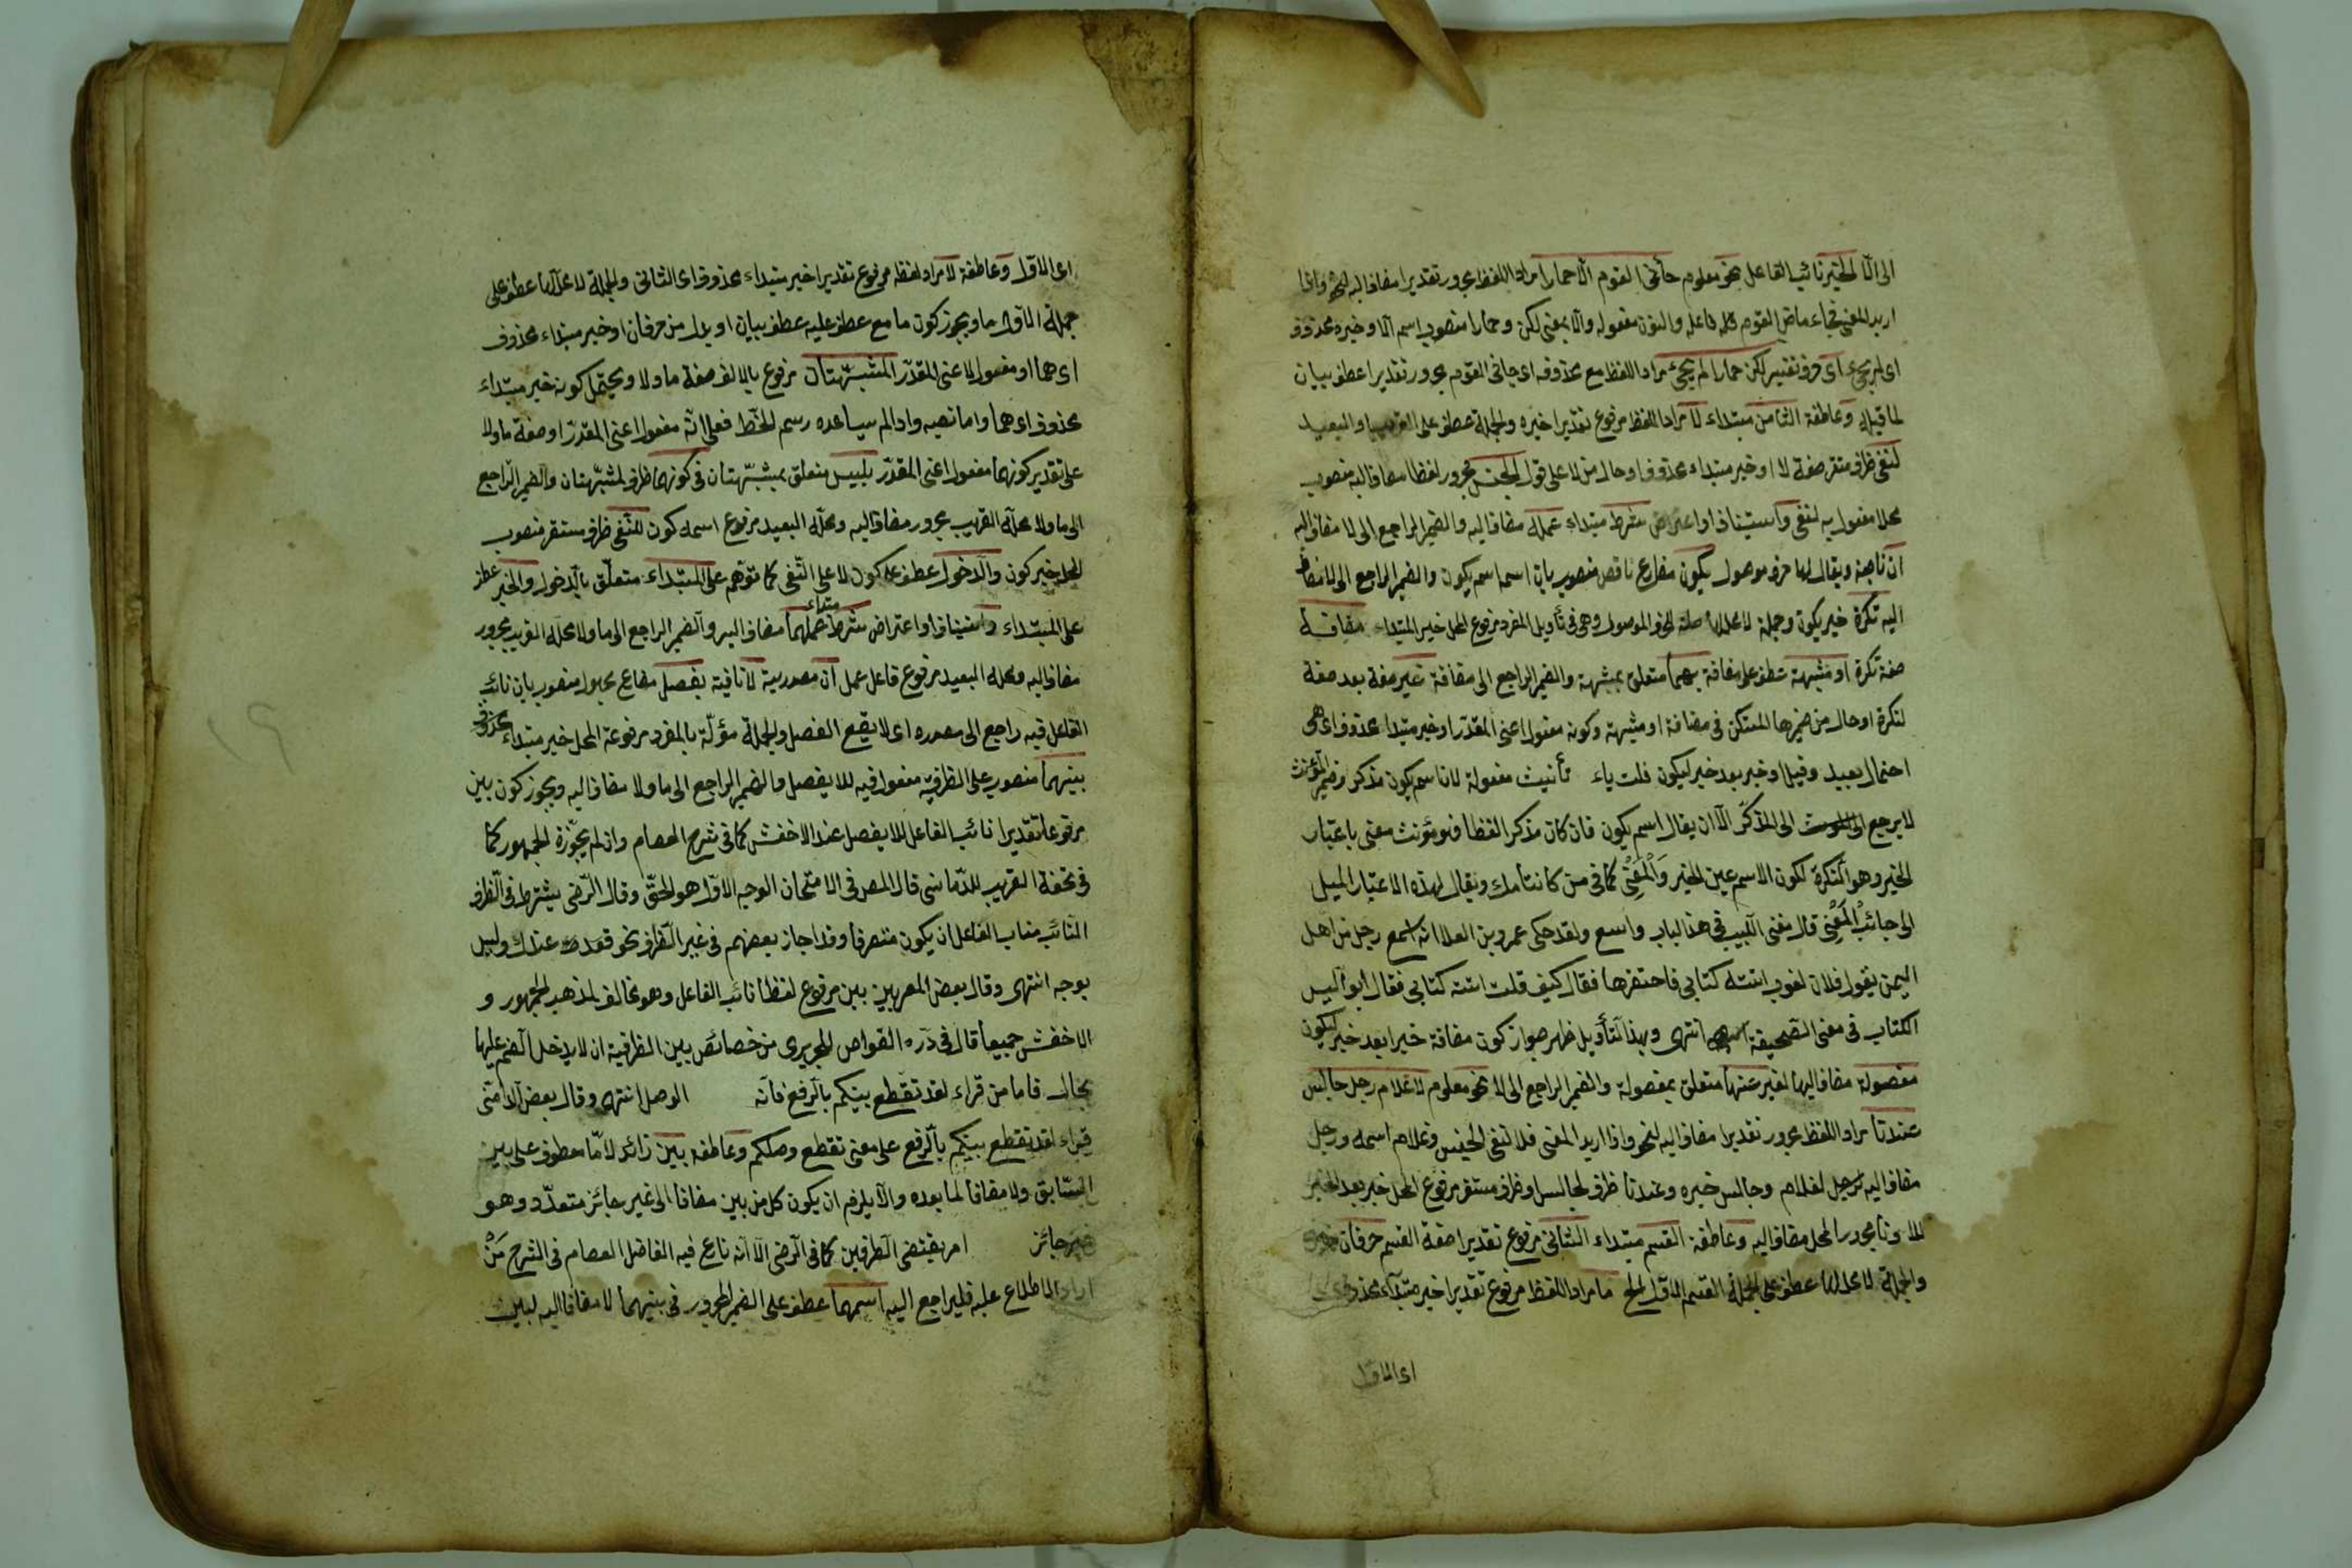 الى الا الخبر نائب الفاعل نحو معلوم جائنى القوم الا حمارا مراد اللفظ مجرور تقديرا مضاف اليه لنحو واذا
اريد المعنى فجاء ماض القوم فاعله والنون مفعوله والا بمعنى لكن وحمارا منصوب اسم الا وخبره محذوف
اى لم يجئ اى حرف تفسير لكن حمارا لم يجئ مراد اللفظ مع محذوفه اى جائنى القوم مجرور تقديرا عطف بيان
لما قبله وعاطفة الثامن مبتداء لا مراد اللفظ مرفوع تقديرا خبره والجملة عطف على القريب او البعيد
لنفى ظرف مستقر صفة لا او خبر مبتداء محذوف او حال من لا على قول الجنس مجرور لفظا مضاف اليه منصوب
محلا مفعول به لنفى واستيناف او اعتراض شرط مبتداء عمله مضاف اليه والضمير الراجع الى لا مضاف اليه
ان ناصبة ويقال لها حرف موصول يكون مضارع ناقص منصوب بان اسما اسم يكون والضمير الراجع الى لا مضاف
اليه نكرة خبر يكون وجملة لا محل لها صلة لحرف الموصول وهى فى تأويل المفرد مرفوع المحل خبر المبتداء مضافة
صفة نكرة او مشبهة عطف على مضافة بهما متعلق بمشبهة والضمير الراجع الى مضافة غير صفة بعد صفة
لنكرة او حال من ضميرها المستكن فى مضافة او مشبهة وكونه مفعول اعنى المقدر او خبر مبتداء محذوف اى هى
احتمال بعيد وقيل او خبر بعد خبر ليكون قلت ياء تأنيث مفعولة لان اسم يكون مذكر وضمير المؤنث
لا يرجع الى المذكر الا ان يقال اسم يكون فان كان مذكر الفظا فهو مؤنث معنى باعتبار
الخبر وهو النكرة لكون الاسم عين الخبر والمعنى كما فى من كانت امك ويقال لهذه الاعتبار الميل
الى جانب المعنى قال مغنى اللبيب فى هذا الباب واسع ولقد حكى عمرو بن العلا انه سمع رجل من اهل
اليمن يقول فلان لغوب اتته كتابى فاحتقرها فقال كيف قلت اتته كتابى فقال أو أليس
الكتاب فى معنى الصحيفة انتهى وبهذا التأويل ظهر جواز كون مضافة خبرا بعد خبر ليكون
مفصولة مضاف اليها لغير عنها متعلق بمفصولة والضمير الراجع الى لا نحو معلوم لا غلام رجل جالس
عندنا مراد اللفظ مجرور تقديرا مضاف اليه لنحو واذا اريد المعنى فلا لنفى الجنس وغلام اسمه ورجل
مضاف اليه لرجل لغلام وجالس خبره وعندنا ظرف لجالس او ظرف مستقر مرفوع المحل خبر بعد الخبر
للا ونا مجرور المحل مضاف اليه وعاطفة القسم مبتداء الثانى مرفوع تقديرا صفة القسم حرفان خبره
والجملة لا محل لها عطف على الجملة القسم الاول الخ ما مراد اللفظ مرفوع تقديرا خبر مبتداء محذوف
اى الاول
اى الاول وعاطفة لا مراد لفظه مرفوع تقديرا خبر مبتداء محذوف اى الثانى والجملة لا محل لها عطف على
جملة الاول ما ويجوز كون ما مع عطف عليه عطف بيان او بدل من حرفان او خبر مبتداء محذوف
اى هما او مفعول لاعنى المقدر المشبهتان مرفوع بالالف صفة ما ولا ويحتمل كونه خبر مبتداء
محذوف اى هما واما نصبه واد الم يساعده رسم الخط فعلى انه مفعول اعنى المقدر او صفة ما ولا
على تقدير كونهما مفعول اعنى المقدر بليس متعلق بمشبهتان فى كونهما ظرف لمشبهتان والضمير الراجع
الى ما ولا محله القريب مجرور مضاف اليه ومحله البعيد مرفوع اسمه كون للنفى ظرف مستقر منصوب
المحل خبر كون والدخول عطف على كون لا على النفى كما توهم على المبتداء متعلق بالدخول والخبر عطف
على المبتداء واستيناف او اعتراض شرط مبتداء عملهما مضاف اليه والضمير الراجع الى ما ولا محله القريب مجرور
مضاف اليه ومحله البعيد مرفوع فاعل عمل ان مصدرية لا نافية يفصل مضارع مجهول منصوب بان نائب
الفاعل فيه راجع الى مصدره اى لا يقع الفصل والجملة مؤلة بالمفرد مرفوعة المحل خبر مبتداء محذوف
بينهما منصوب على الظرفية مفعول فيه للا يفصل والضمير الراجع الى ما ولا مضاف اليه ويجوز كون بين
مرفوعا تقديرا نائب الفاعل للا يفصل عند الاخفش كما فى شرح العصام وان لم يجوزه الجمهور كما
فى تحفة الغريب للدمامنى قال المص فى الامتحان الوجه الاول هو الحق وقال الرضى يشترط فى الظرف
النائب مناب الفاعل ان يكون متصرفا وقد اجاز بعضهم فى غير الظرف نحو قعد عندك وليس
بوجه انتهى وقال بعض المعربين بين مرفوع لفظا نائب الفاعل وهو مخالف لمذهب الجمهور و
الاخفش جميعا قال فى درة الغواص الحريرى من خصائص بين الظرفية ان لا يدخل الضم عليها
بحال فاما من قراء لقد تقطع بينكم بالرفع فانه الوصل انتهى وقال بعض
قراء لقد تقطع بينكم بالرفع على معنى تقطع وصلكم وعاطفة بين زائد لا معطوف على بين
السابق ولا مضافا لما بعده والا يلزم ان يكون كل من بين مضافا الى غير جائز متعدد وهو
غير جائز امر يقتضى الطرفين كما فى الرضى الا انه نازع فيه الفاضل العصام فى الشرح من
اراد الاطلاع عليه فليراجع اليه اسمهما عطف على الضمير المجرور فى بينهما لا مضاف اليه لبين